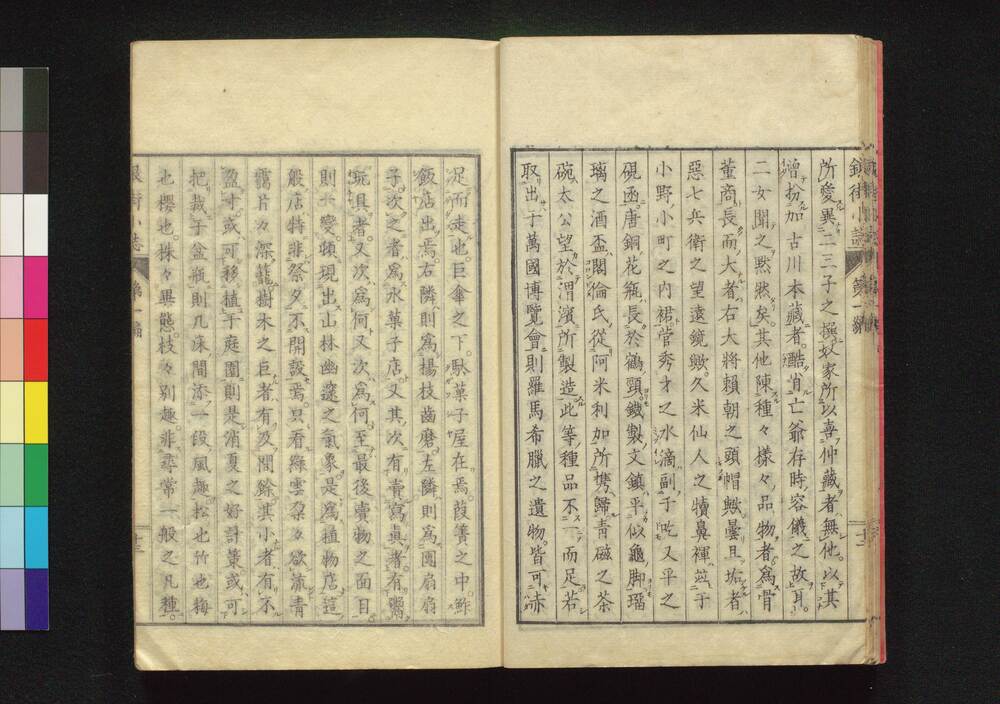 銀街小誌 第一編 十二
所愛異二三子之操奴家所以喜仲藏者無他以其
曾扮加古川本藏者酷肖亡爺存時容儀之故耳
二女聞之默然矣其他陳種々樣々品物者爲骨
董商長而大者右大將賴朝之頭帽歟曇且垢者
惡七兵衛之望遠鏡歟久米仙人之犢鼻褌竝于
小野小町之內裙菅秀才之水滴副于吃又平之
硯函唐銅花瓶長於鶴頸鐵製文鎮平似龜脚瑠
璃之酒盃閣倫氏從阿米利加所携歸靑磁之茶
碗太公望於渭濱所製造此等種品不一而足若
取出于萬國博覽會則羅馬希臘之遺物皆可赤
足而走也巨傘之下駄菓子屋在焉葭簀之中鮓
飯店出焉右隣則爲楊枝齒磨左隣則爲團扇扇
子次之者爲水菓子店又其次有賣寫眞者有鬻
玩具者又次爲何又次爲何至最後賣物之面目
則一變頓現出山林幽邃之氣象是爲植物店這
般店特非祭夕不開設焉只看綠雲朶々欲流靑
靄片々深籠樹木之巨者有及間餘其小者有不
盈寸或可移植于庭園則是消夏之好計策或可
把栽于盆瓶則几床間添一段風趣松也竹也梅
也櫻也株々異態枝々別趣非尋常一般之凡種
銀街小誌 第一編 十三